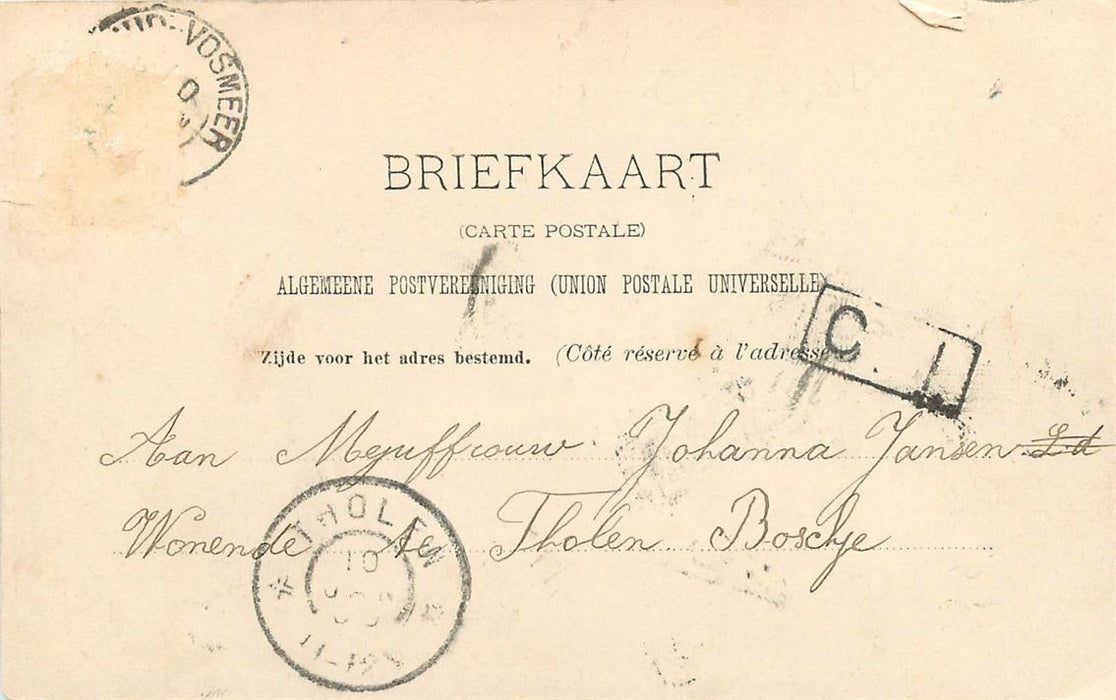 VOSMEER
BRIEFKAART
(CARTE POSTALE)
ALGEMEENE POSTVEREENIGING (UNION POSTALE UNIVERSELLE)
Zijde voor het adres bestemd. (Côté réservé à l'adresse)
C. I
Aan Mejuffrouw Johanna Jansen
Wonende te Tholen Boschje
THOLEN
10
11-12V